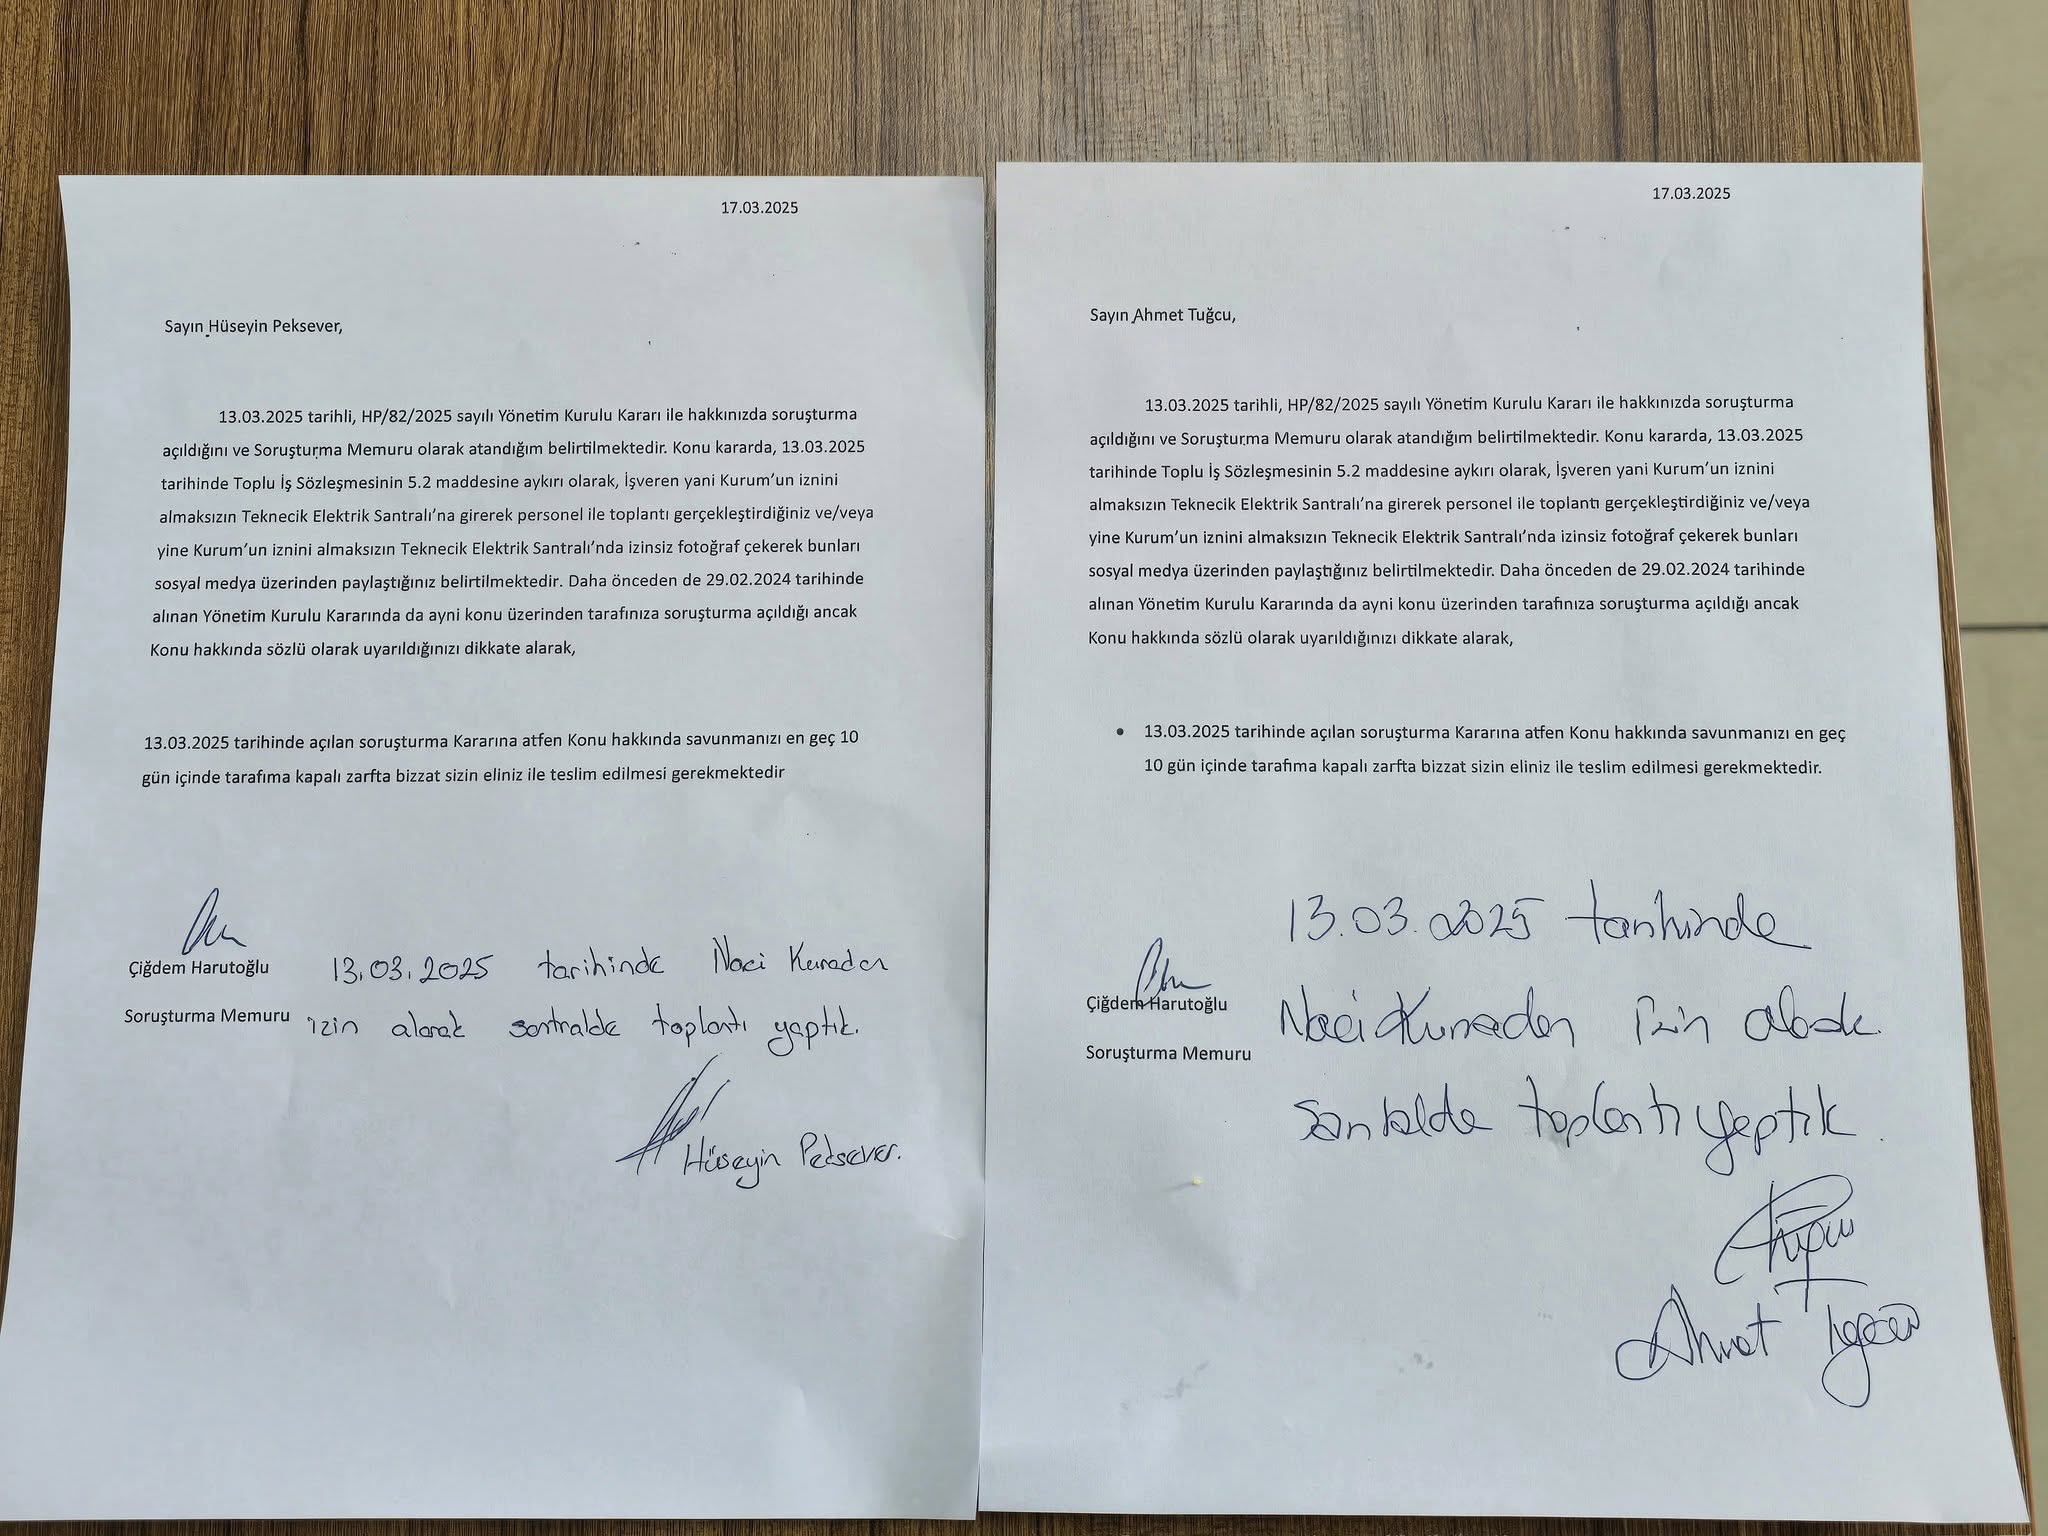 17.03.2025
Sayın Hüseyin Peksever,
13.03.2025 tarihli, HP/82/2025 sayılı Yönetim Kurulu Kararı ile hakkınızda soruşturma
açıldığını ve Soruşturma Memuru olarak atandığım belirtilmektedir. Konu kararda, 13.03.2025
tarihinde Toplu İş Sözleşmesinin 5.2 maddesine aykırı olarak, İşveren yani Kurum’un iznini
almaksızın Teknecik Elektrik Santralı’na girerek personel ile toplantı gerçekleştirdiğiniz ve/veya
yine Kurum’un iznini almaksızın Teknecik Elektrik Santralı’nda izinsiz fotoğraf çekerek bunları
sosyal medya üzerinden paylaştığınız belirtilmektedir. Daha önceden de 29.02.2024 tarihinde
alınan Yönetim Kurulu Kararında da ayni konu üzerinden tarafınıza soruşturma açıldığı ancak
Konu hakkında sözlü olarak uyarıldığınızı dikkate alarak,
13.03.2025 tarihinde açılan soruşturma Kararına atfen Konu hakkında savunmanızı en geç 10
gün içinde tarafıma kapalı zarfta bizzat sizin eliniz ile teslim edilmesi gerekmektedir
Çiğdem Harutoğlu
Soruşturma Memuru
13.03.2025 tarihinde Naci Kuraden
izin alarak santralde toplantı yaptık.
Hüseyin Peksever.
17.03.2025
Sayın Ahmet Tuğcu,
13.03.2025 tarihli, HP/82/2025 sayılı Yönetim Kurulu Kararı ile hakkınızda soruşturma
açıldığını ve Soruşturma Memuru olarak atandığım belirtilmektedir. Konu kararda, 13.03.2025
tarihinde Toplu İş Sözleşmesinin 5.2 maddesine aykırı olarak, İşveren yani Kurum’un iznini
almaksızın Teknecik Elektrik Santralı’na girerek personel ile toplantı gerçekleştirdiğiniz ve/veya
yine Kurum’un iznini almaksızın Teknecik Elektrik Santralı’nda izinsiz fotoğraf çekerek bunları
sosyal medya üzerinden paylaştığınız belirtilmektedir. Daha önceden de 29.02.2024 tarihinde
alınan Yönetim Kurulu Kararında da ayni konu üzerinden tarafınıza soruşturma açıldığı ancak
Konu hakkında sözlü olarak uyarıldığınızı dikkate alarak,
• 13.03.2025 tarihinde açılan soruşturma Kararına atfen Konu hakkında savunmanızı en geç
10 gün içinde tarafıma kapalı zarfta bizzat sizin eliniz ile teslim edilmesi gerekmektedir.
Çiğdem Harutoğlu
Soruşturma Memuru
13.03.2025 tarihinde
Naci Kuraden izin alarak
santralde toplantı yaptık.
Ahmet